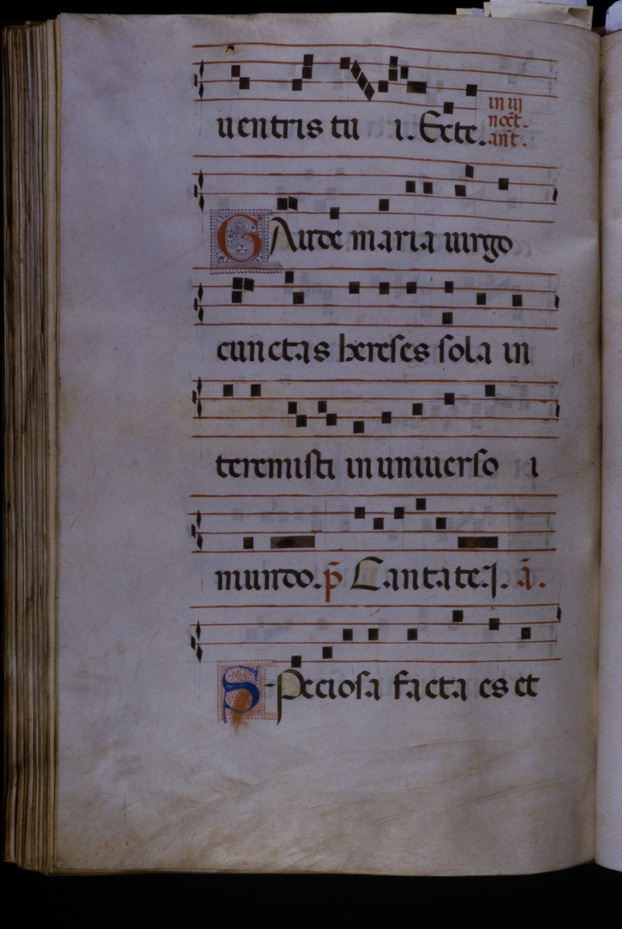 uentris tu i. Ecce. in iij noct. ant.
Gaude maria uirgo
cunctas hereses sola in
teremisti in uniuerso i
mundo. p̄ Cantate.j. a̅.
Speciosa facta es et